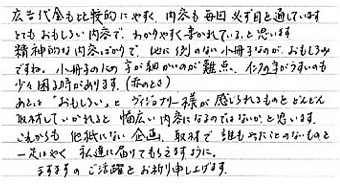 広告代金も比較的にやすく、内容も毎回必ず目を通しています
とてもおもしろい内容で、わかりやすく書かれていると思います
精神的な内容ばかりで、他に例のない小冊子なのが、おもしろい
ですね。小冊子のため字が細かいのが難点、印刷がうすいのも
少々困る時があります。(赤のとき)
あとは"おもしろい"と ヴィジョナリー様が感じられるものをどんどん
取材していかれると 幅広い内容になるのではないかと思います。
これからも 他紙にない 企画、取材で 誰もやったことのないものを
一足はやく 私達に届けてもらえますように。
ますますの ご活躍を お祈り申し上げます。